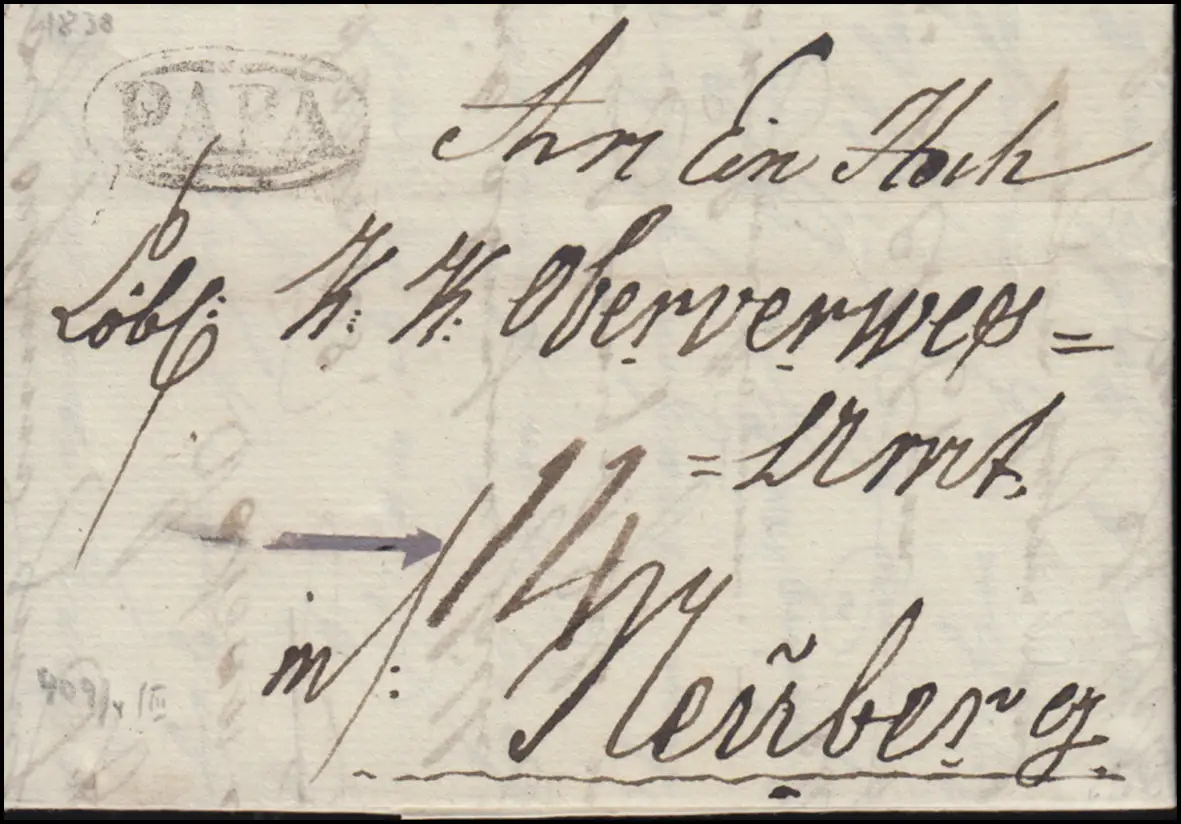 1838
PAPA
An Ein Hoch
Löbl: K: K: Oberverwes=
=Amt.
14
in/:
Neüberg.